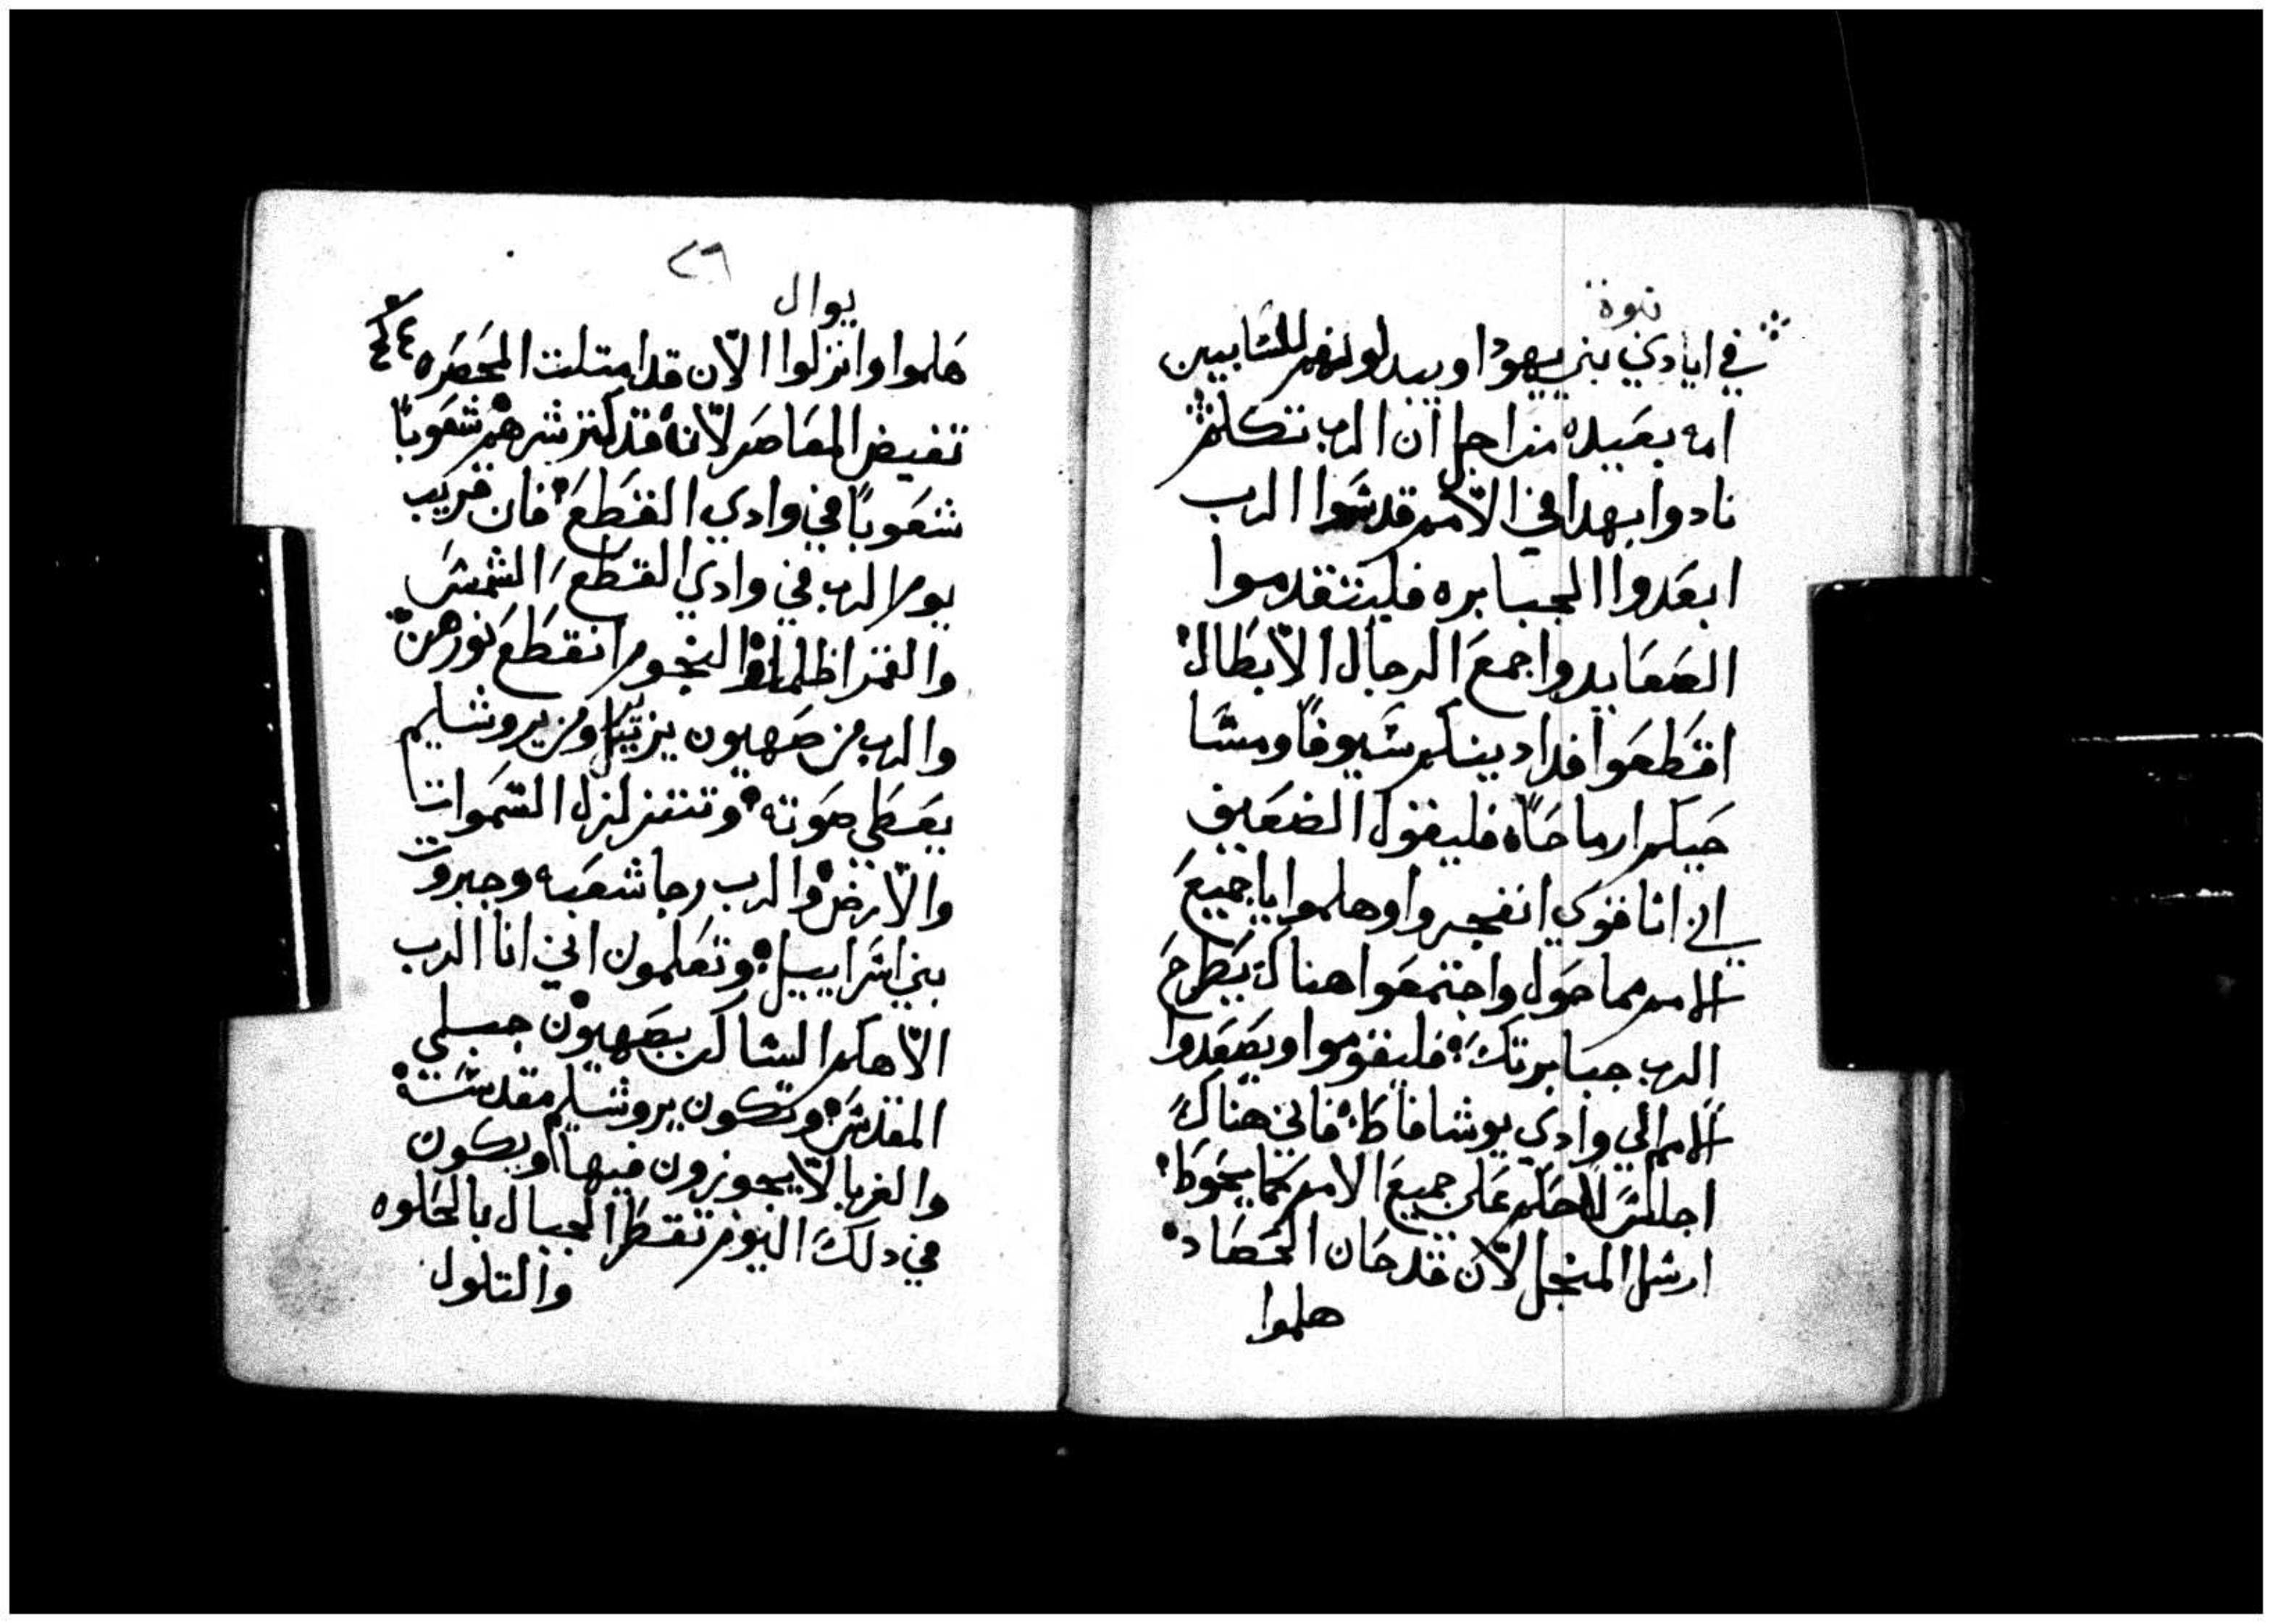 نبوة
في ايادي بني يهودا ويبدلونهم للسابيين
امه بعيده من اجل ان الرب تكلم
نادوا بهدا في الامم قدسوا الرب
ابعدوا الجبابره فليتقدموا
الصعايدوا جمع الرجال الابطال
اقتطعوا فدادينكم سيوفا ومسا
حيكم ارماحا فليقول الضعيف
اني انا قوي انفجروا وهلموا يا جميع
الامم مما حول واجتمعوا هناك يطرح
الرب جبابرتك فليقوموا ويصعدوا
الامم الي وادي يوشافاط فاني هناك
اجلس لاحكم على جميع الامم كما يحوط
ارسل المنجل لان قد حان الحصاد
هلموا
٢٦
يوال
هلموا وانزلوا الان قد امتلت المعصره
تفيض المعاصر لانه قد كتر شرهم شعوبا
شعوبا في وادي القطع فان قريب
يوم الرب في وادي القطع الشمس
والقمر اظلما والنجوم انقطع نورهن
والرب من صهيون يزير ومن يروشليم
يعطي صوته وتتزلزل السموات
والارض والرب رجا شعبه وجبروت
بني اسراييل وتعلمون اني انا الرب
الاهكم الساكن بصهيون جبلي
المقدس وتكون يروشليم مقدسة
والغربا لا يجوزون فيها ويكون
في دلك اليوم تقطر الجبال بالحلوه
والتلول